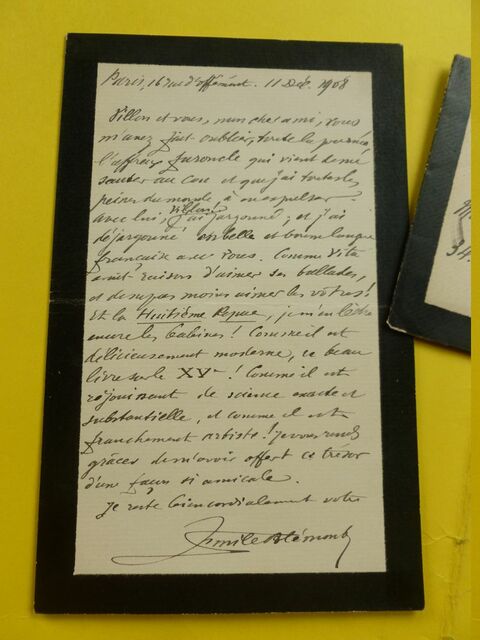 Paris, 16 rue d'offémont. 11 Déc. 1908
Villon et vous, mon cher ami, vous
m'avez fait oublier, toute la journée,
l'affreux furoncle qui vient de me
sauter au cou et que j'ai toutes les
peines du monde à en expulser.
avec lui, Villon! j'ai jargonné; et j'ai
déjargonné en belle et bonne langue
française avec vous. Comme
avait raison d'aimer ses ballades,
et de ne pas moins aimer les vôtres!
Et la Huitième Repue, je m'en lèche
encore les babines! Comme il est
délicieusement moderne, ce beau
livre sur le XVe! Comme il est
réjouissant de science exacte et
substantielle, et comme il est
franchement artiste! Je vous rends
grâces de m'avoir offert ce trésor
d'une façon si amicale.
Je reste bien cordialement votre
Emile Blémont
34